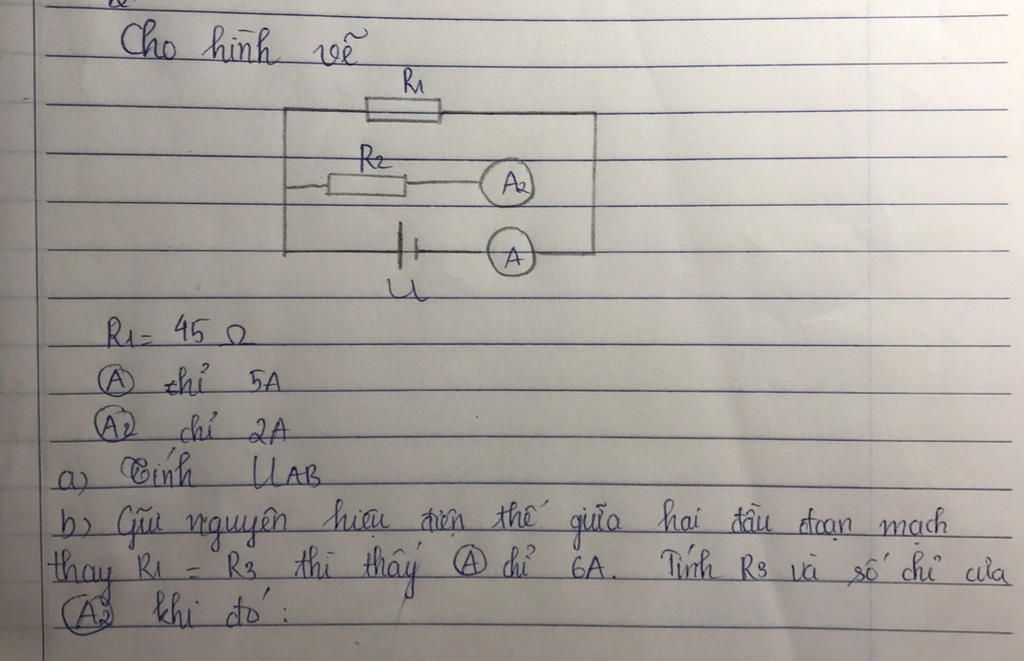 Cho hình vẽ
R1
R2
A2
A
U
R1 = 45 Ω
A chỉ 5A
A2 chỉ 2A
a) Tính UAB
b) Giữ nguyên hiệu điện thế giữa hai đầu đoạn mạch
thay R1 = R3 thì thấy A chỉ 6A. Tính R3 và số chỉ của
A2 khi đó: